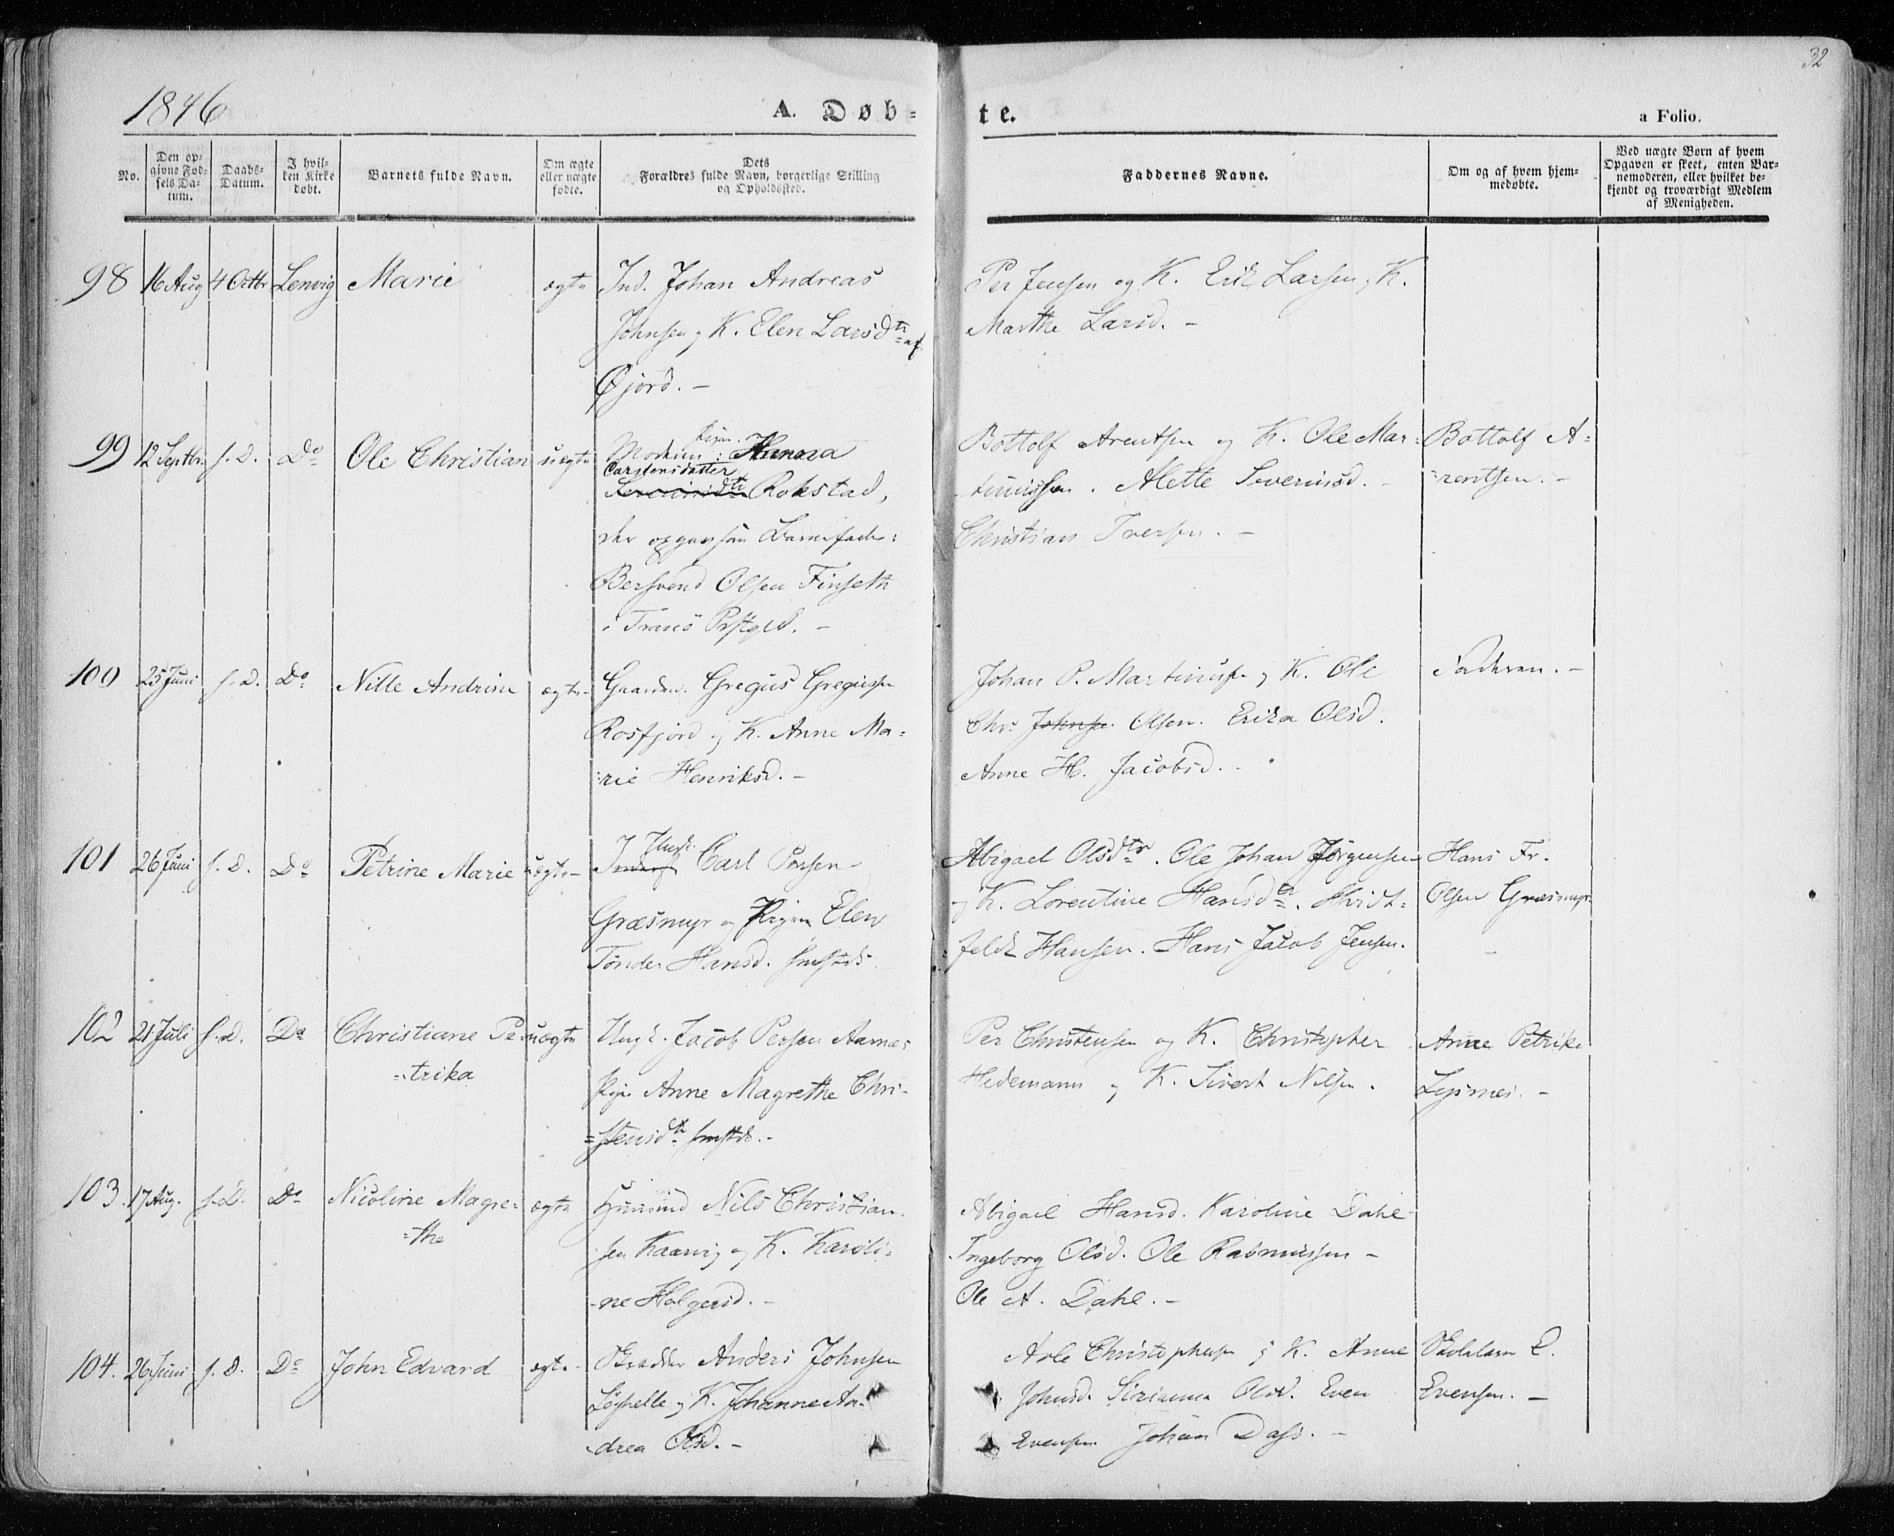 32
1846
A. Døb-
te.
a Folio.
No.
Den op-
givne Fød-
sels Da-
tum.
Daabs-
Datum.
I hvil-
ken Kirke
døbt.
Barnets fulde Navn.
Om ægte
eller uægte
fødte.
Dets
Forældres fulde Navn, borgerlige Stilling
og Opholdssted.
Faddernes Navne.
Om og af hvem hjem-
medøbte.
Ved uægte Børn af hvem
Opgaven er skeet, enten Bar-
nemoderen, eller hvilket be-
kjendt og troværdigt Medlem
af Menigheden.
98 16 Aug 4 Octbr Lenvig Marie ægte Ind. Johan Andreas
Johnsen og K. Elen Larsdtr af
Øjord. -
Per Jensen og K. Erik Larsen, K.
Marthe Larsd. -
99 12 Septbr. s. D. Do Ole Christian uægte
Pigen. Hanna
Carstensdatter
Rokstad,
Barnefader:
Bersvend Olsen Finseth
i Tranö Præstgld. -
Bottolf Arentsen og K. Ole Mar-
tinussen. Alette Severinsd. -
Christian Iversen. -
Bottolf A-
rentsen. -
100 25 Juni s. D. Do Nille Andrine ægte Gaardm. Gregus Gregussen
Rosfjord og K. Anne Ma-
rie Henriksd. -
Johan P. Martinussen og K. Ole
Chr. Johnsen Olsen. Erika Olsd.
Anne H. Jacobsd. -
Faderen. -
101 26 Juni s. D. Do Petrine Marie uægte Ungk. Carl Persen
Græsmyr og Pigen Elen
Tønder Hansd. smstds.
Abigael Olsdtr. Ole Johan Jørgensen
og K. Lorentine Hansdtr. Hvidt-
feldt Hansen. Hans Jacob Jensen.
Hans Fr.
Olsen Græsmyr.
-
102 21 Juli s. D. Do Christiane Pe-
trika
uægte Ungk. Jacob Persen Aarnes
Pige Anne Magrethe Chri-
stensdtr smstds. -
Per Christensen og K. Christopher
Hedemann og K. Sivert Nilsen.
Anne Petrike
Lysnes. -
103. 17 Aug. s. D. Do Nicoline Magre-
the
ægte Huusmd Nils Christian-
sen Kaarvig og K. Karoli-
ne Holgersd. -
Abigael Hansd. Karoline Dahl
Ingeborg Olsd. Ole Rasmussen -
Ole A. Dahl. -
104. 26 Juni s. D. Do John Edvard ægte Anders Johnsen
Løghelle og K. Johanne An-
drea Olsd. -
Arle Christophersen og K. Anne
Johnsd. Sirianna Olsd. Even
Evensen Johan Dass. -
Skolelærer E.
Evensen. -